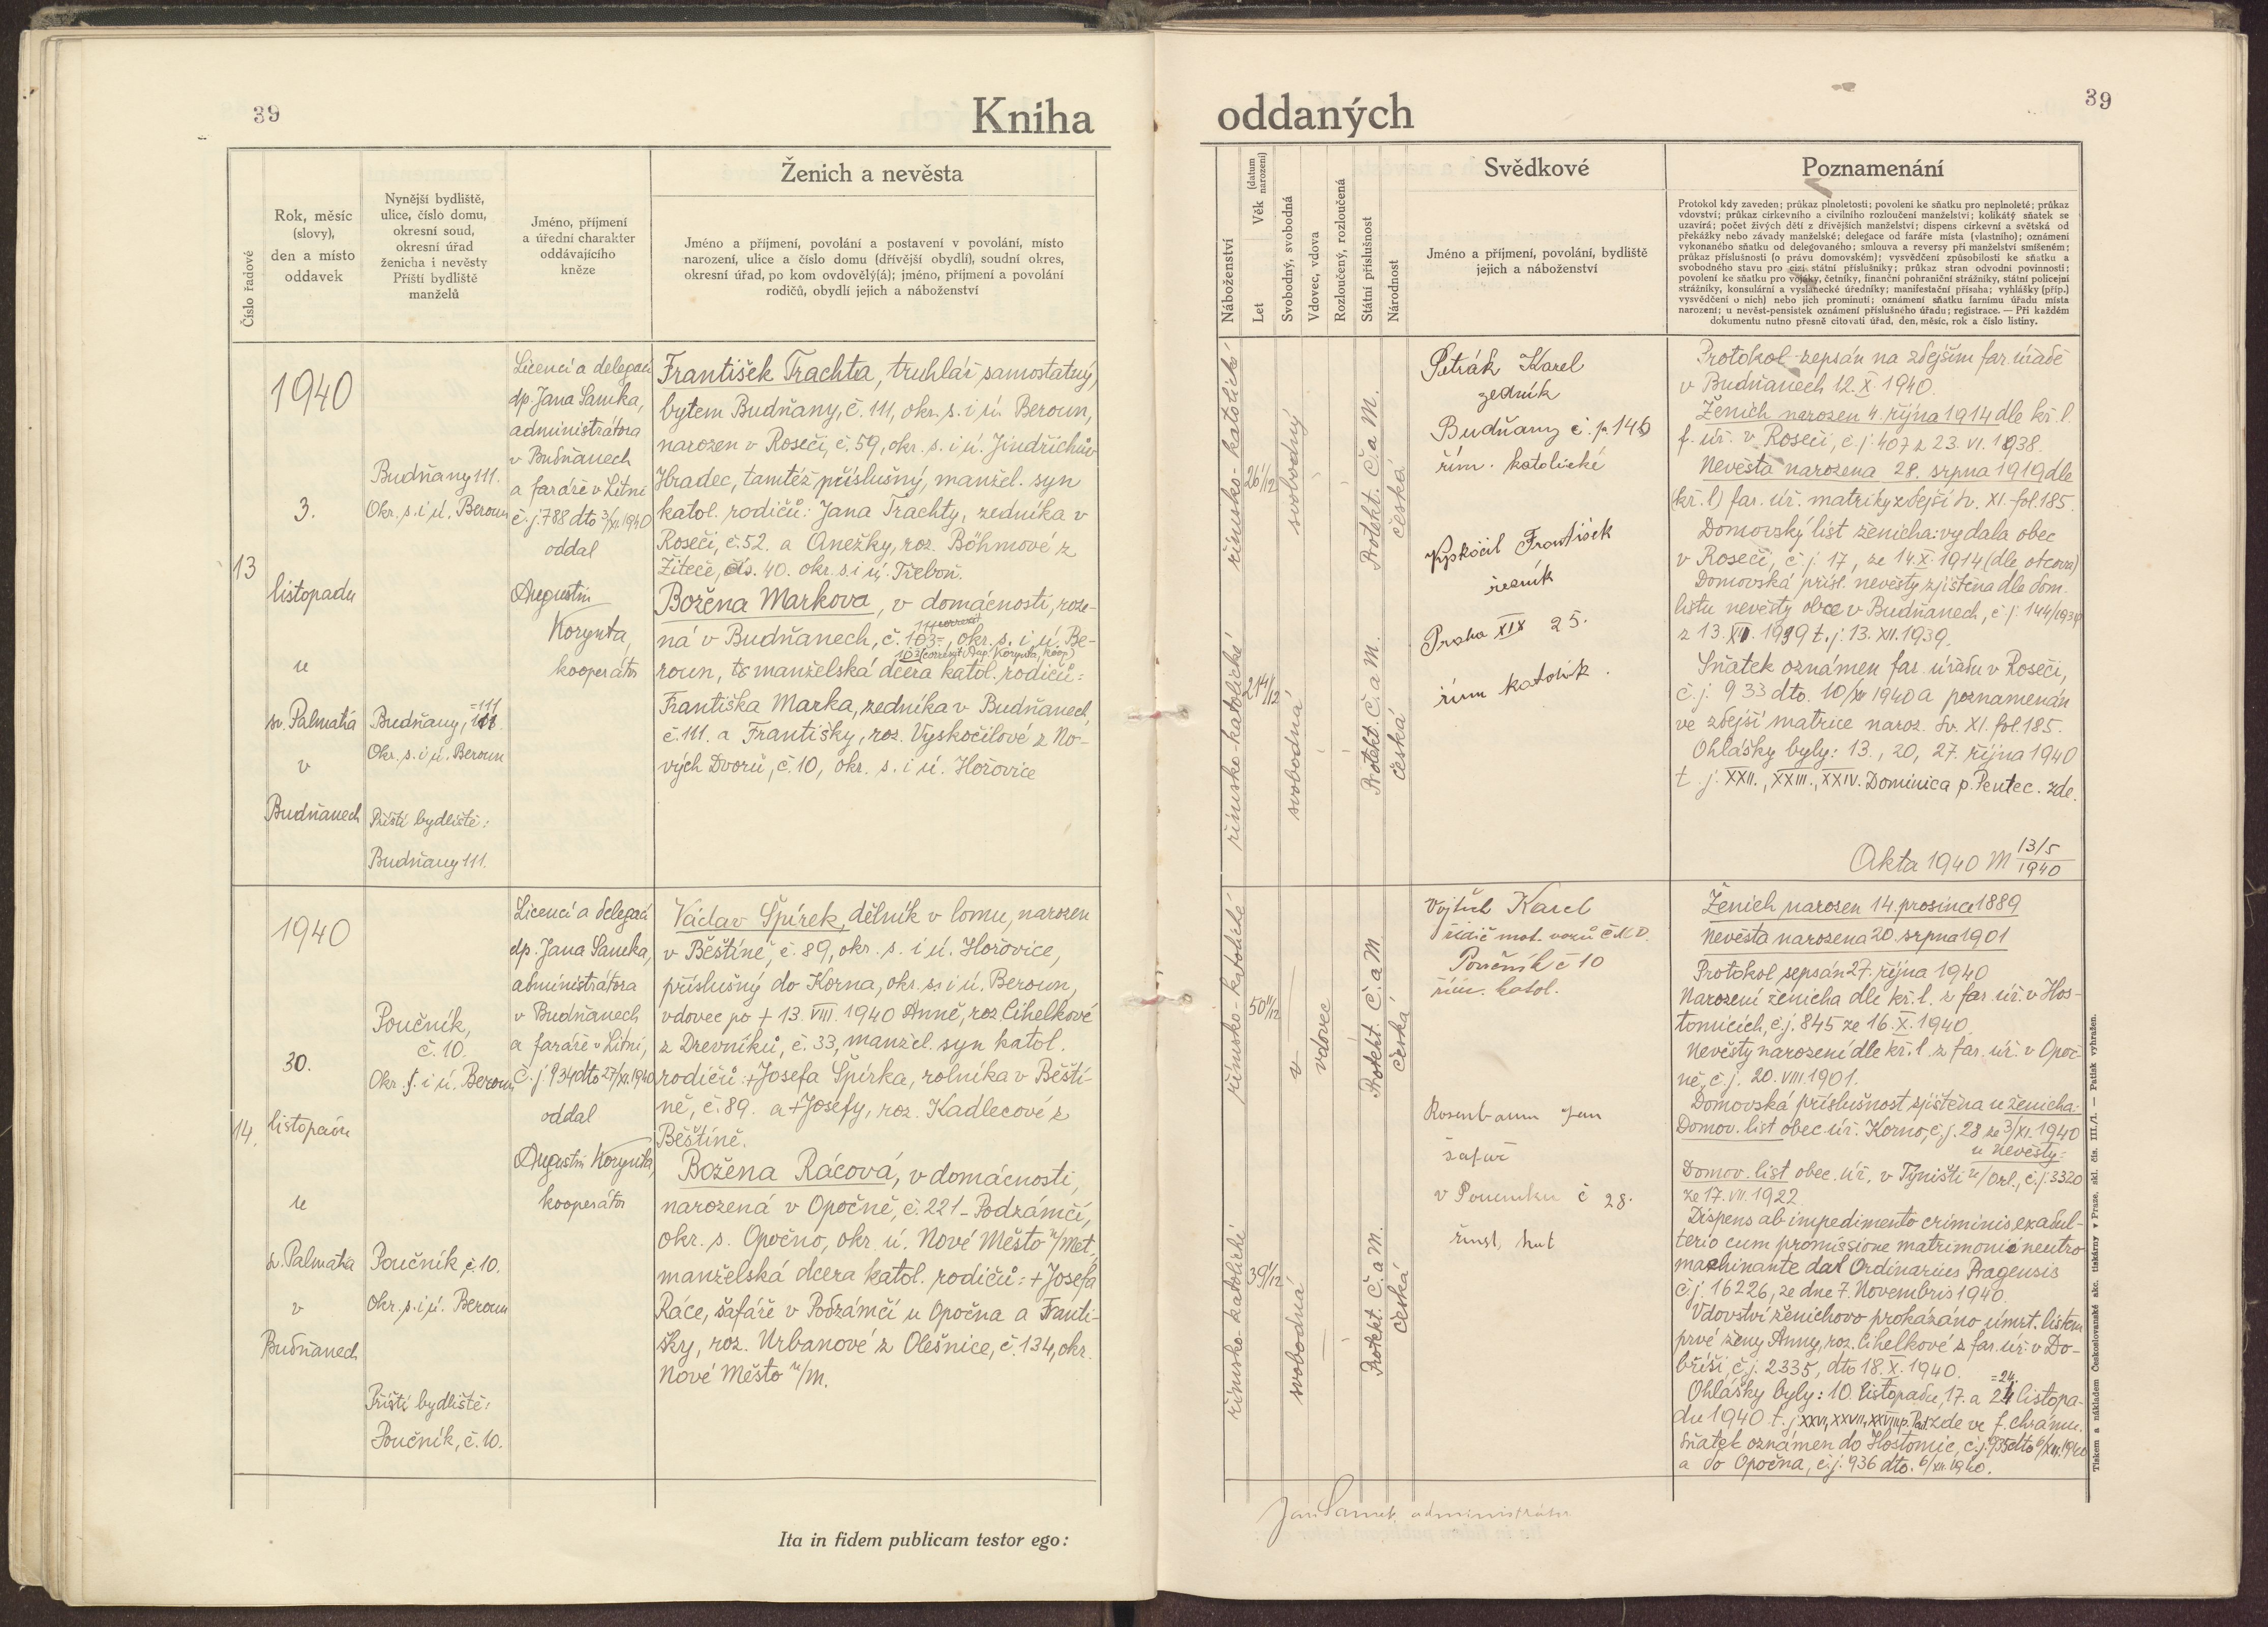 39
Kniha
Ženich a nevěsta
Číslo řadové
Rok, měsíc
(slovy),
den a místo
oddavek
Nynější bydliště,
ulice, číslo domu,
okresní soud,
okresní úřad
ženicha i nevěsty
Příští bydliště
manželů
Jméno, příjmení
a úřední charakter
oddávajícího
kněze
Jméno a příjmení, povolání a postavení v povolání, místo
narození, ulice a číslo domu (dřívější obydlí), soudní okres,
okresní úřad, po kom ovdověl(á); jméno, příjmení a povolání
rodičů, obydlí jejich a náboženství
13
1940
3.
listopadu
u
sv. Palmatia
v
Budňanech
Budňany 111.
Okr. s. i ú. Beroun
Budňany,
=111
Okr. s. i ú. Beroun
Příští bydliště:
Budňany 111.
Licencí a delegací
dp. Jana Samka,
administrátora
v Budňanech
a faráře v Litni
č. j. 788 dto 3/XI. 1940
oddal
Augustin
Korynta,
kooperátor
František Trachta, truhlář samostatný,
bytem Budňany, č. 111, okr. s. i ú. Beroun,
narozen v Roseči, č. 59, okr. s. i ú. Jindřichův
Hradec, tamtéž příslušný, manžel. syn
katol. rodičů: Jana Trachty, zedníka v
Roseči, č. 52. a Anežky, roz. Böhmové z
Žíteče, čís. 40. okr. s. i ú. Třeboň.
Božena Markova, v domácnosti, roze-
ná v Budňanech, č. 103-, okr. s. i ú. Be-
103 (correxit Aug. Korynta, koop.)
roun, manželská dcera katol. rodičů:
Františka Marka, zedníka v Budňanech,
č. 111. a Františky, roz. Vyskočilové z No-
vých Dvorů, č. 10, okr. s. i ú. Hořovice
14.
1940
30.
listopadu
u
sv. Palmatia
v
Budňanech
Poučník,
č. 10.
Okr. s. i ú. Beroun
Poučník, č. 10.
Okr. s. i ú. Beroun
Příští bydliště:
Poučník, č. 10.
Licencí a delegací
dp. Jana Samka,
administrátora
v Budňanech
a faráře v Litni,
č. j. 934 dto 27/XI. 1940
oddal
Augustin Korynta,
kooperátor
Václav Špírek, dělník v lomu, narozen
v Běštíně, č. 89, okr. s. i ú. Hořovice,
příslušný do Korna, okr. s. i ú. Beroun,
vdovec po + 13. VIII. 1940 Anně, roz. Cihelkové
z Drevníků, č. 33, manžel. syn katol.
rodičů: + Josefa Špírka, rolníka v Běští-
ně, č. 89. a + Josefy, roz. Kadlecové z
Běštíně.
Božena Rácová, v domácnosti,
narozená v Opočně, č. 221 - Podzámčí,
okr. s. Opočno, okr. ú. Nové Město n/Met.,
manželská dcera katol. rodičů: + Josefa
Ráce, šafáře v Podzámčí u Opočna a Franti-
šky, roz. Urbanové z Olešnice, č. 134, okr.
Nové Město n/M.
Ita in fidem publicam testor ego:
oddaných
39
Náboženství
Let Věk (datum narození)
Svobodný, svobodná
Vdovec, vdova
Rozloučený, rozloučená
Státní příslušnost
Národnost
Svědkové
Jméno a příjmení, povolání, bydliště
jejich a náboženství
Poznamenání
Protokol kdy zaveden; průkaz plnoletosti; povolení ke sňatku pro neplnoleté; průkaz
vdovství; průkaz církevního a civilního rozloučení manželství; kolikátý sňatek se
uzavírá; počet živých dětí z dřívějších manželství; dispens církevní a světská od
překážky nebo závady manželské; delegace od faráře místa (vlastního); oznámení
vykonaného sňatku od delegovaného; smlouva a reversy při manželství smíšeném;
průkaz příslušnosti (o právu domovském); vysvědčení způsobilosti ke sňatku a
svobodného stavu pro cizí státní příslušníky; průkaz stran odvodní povinnosti;
povolení ke sňatku pro vojáky, četníky, finanční pohraniční strážníky, státní policejní
strážníky, konsulární a vyslanecké úředníky; manifestační přísaha; vyhlášky (příp.)
vysvědčení o nich) nebo jich prominutí; oznámení sňatku farnímu úřadu místa
narození; u nevěst-pensistek oznámení příslušného úřadu; registrace. — Při každém
dokumentu nutno přesně citovati úřad, den, měsíc, rok a číslo listiny.
římsko-katolické
26 1/12
svobodný
Protekt. Č. a M.
česká
římsko-katolické
svobodná
Protekt. Č. a M.
česká
Petrák Karel
zedník
Budňany č. p. 146
řím. katolické
Vyskočil František
řezník
Praha XIX 25.
řím katolík.
Protokol sepsán na zdejším far. úřadě
v Budňanech 12. X. 1940.
Ženich narozen 4. října 1914 dle kř. l.
f. úř. v Roseči, č. j. 407 z 23. VI. 1938.
Nevěsta narozena 28. srpna 1919 dle
(kř. l) far. úř. matriky zdejší sv. XI. fol. 185.
Domovský list ženicha: vydala obec
v Roseči, č. j. 17, ze 14. X. 1914 (dle otcova)
Domovská přísl. nevěsty zjištěna dle dom.
listu nevěsty obce v Budňanech, č. j. 144/1939
z 13. XII. 1939 t. j. 13. XII. 1939.
Sňatek oznámen far. úřadu v Roseči,
č. j. 933 dto. 10/XII 1940 a poznamenán
ve zdejší matrice naroz. sv. XI. fol. 185.
Ohlášky byly: 13., 20, 27. října 1940
t. j. XXII., XXIII., XXIV. Dominica p. Pentec. zde.
Akta 1940 M 13/5
1940
římsko-katolické
vdovec
Protekt. Č. a M
česká
římsko-katolické
svobodná
Protekt. Č. a M.
česká
Vojtěch Karel
řidič mot. vozů ČMD.
Poučník č 10
řím. katol.
Rosenbaum Jan
šafář
v Poučníku č 28.
Ženich narozen 14. prosince 1889
Nevěsta narozena 20. srpna 1901
Protokol sepsán 27. října 1940
Narození ženicha dle kř. l. z far. úř. v Hos-
tomicích, č. j. 845 ze 16. X. 1940.
Nevěsty narození dle kř. l. z far. úř. v Opoč-
ně, č. j. 20. VIII. 1901.
Domovská příslušnost zjištěna u ženicha:
Domov. list obec. úř. Korno, č. j. 28 ze 3/XI. 1940
u nevěsty:
Domov. list obec. úř. v Týništi n/Orl., č. j. 3320
ze 17. VII. 1922.
Dispens ab impedimento criminis, ex adul-
terio cum promissione matrimonii neutro
machinante dat Ordinarius Pragensis
č. j. 16226, ze dne 7. Novembris 1940.
Vdovství ženichovo prokázáno úmrt. listem
prvé ženy Anny, roz. Cihelkové z far. úř. v Do-
bříši, č. j. 2335, dto 18. X. 1940.
=24.
Ohlášky byly: 10. listopadu, 17. a 24 listopa-
du 1940 t. j. XXVI, XXVII, XXVIII p. Pent. zde ve f. chrámu.
Sňatek oznámen do Hostomic, č. j. 935 dto 6/XII. 1940
a do Opočna, č. j. 936 dto. 6/XII. 1940.
Jan Samek, administrátor
Tiskem a nákladem Československé akc. tiskárny v Praze, skl. čís. III./1. — Patisk vyhražen.